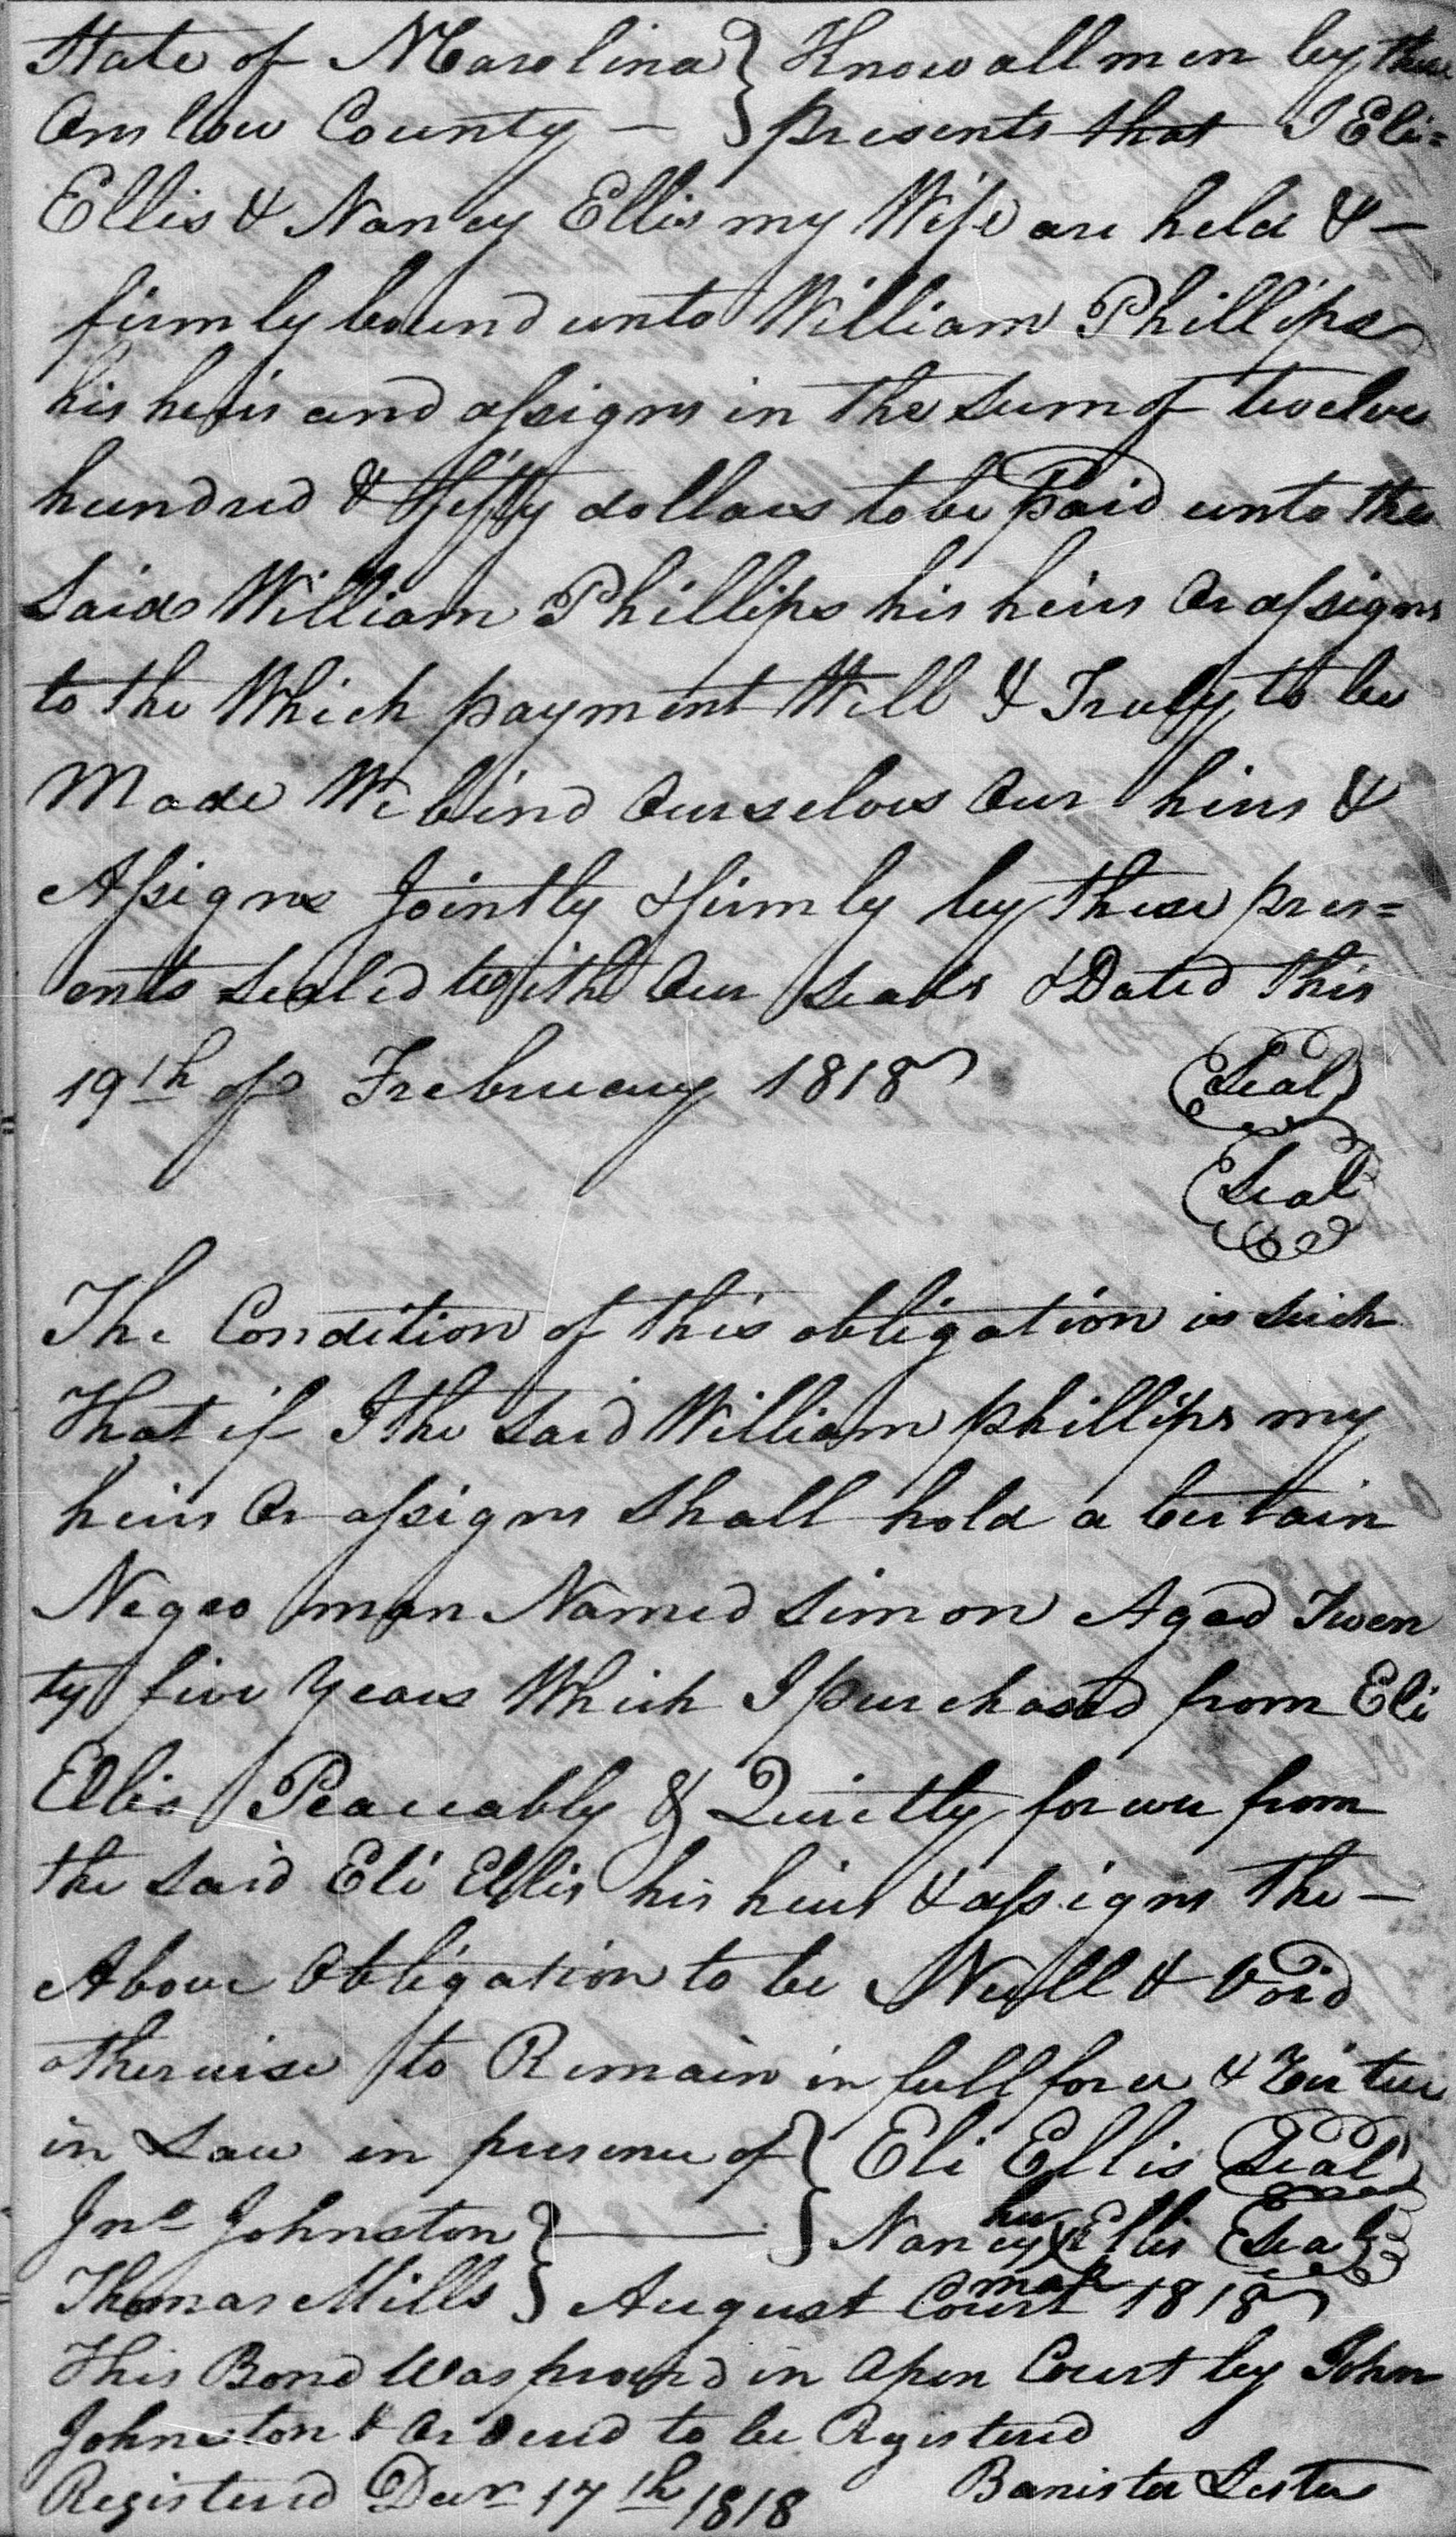 State of N Carolina } Know all men by these
Onslow County — } presents that I Eli=
Ellis & Nancy Ellis my Wife are held & —
firmly bound unto William Phillips
his heirs and assigns in the sum of twelve
hundred & fifty dollars to be paid unto the
Said William Phillips his heirs Or assigns
to the Which payment Will & Truly to be
Made We bind Ourselves Our heirs &
Assigns Jointly & firmly by these pres=
ents Sealed with Our Seals & Dated this
19th of Frebruary 1818 Seal
Seal
The Condition of this obligation is Such
That if I the Said William phillips my
heirs Or assigns Shall hold a Certain
Negro man Named Simon Aged Twen
ty five Years Which I purchased from Eli
Ellis Peaceably & Quietly forever from
the Said Eli Ellis his heirs & assigns the —
Above Obligation to be Null & Void
otherwise to Remain in full force & Virtue
in Law in presence of } Eli Ellis Seal
her
Jno Johnston } ——— } Nancy X Ellis Seal
mark
Thomas Mills } August Court 1818
This Bond Was proved in Open Court by John
Johnston & Ordered to be Registered
Registered Decr 17th 1818 Banister Lester